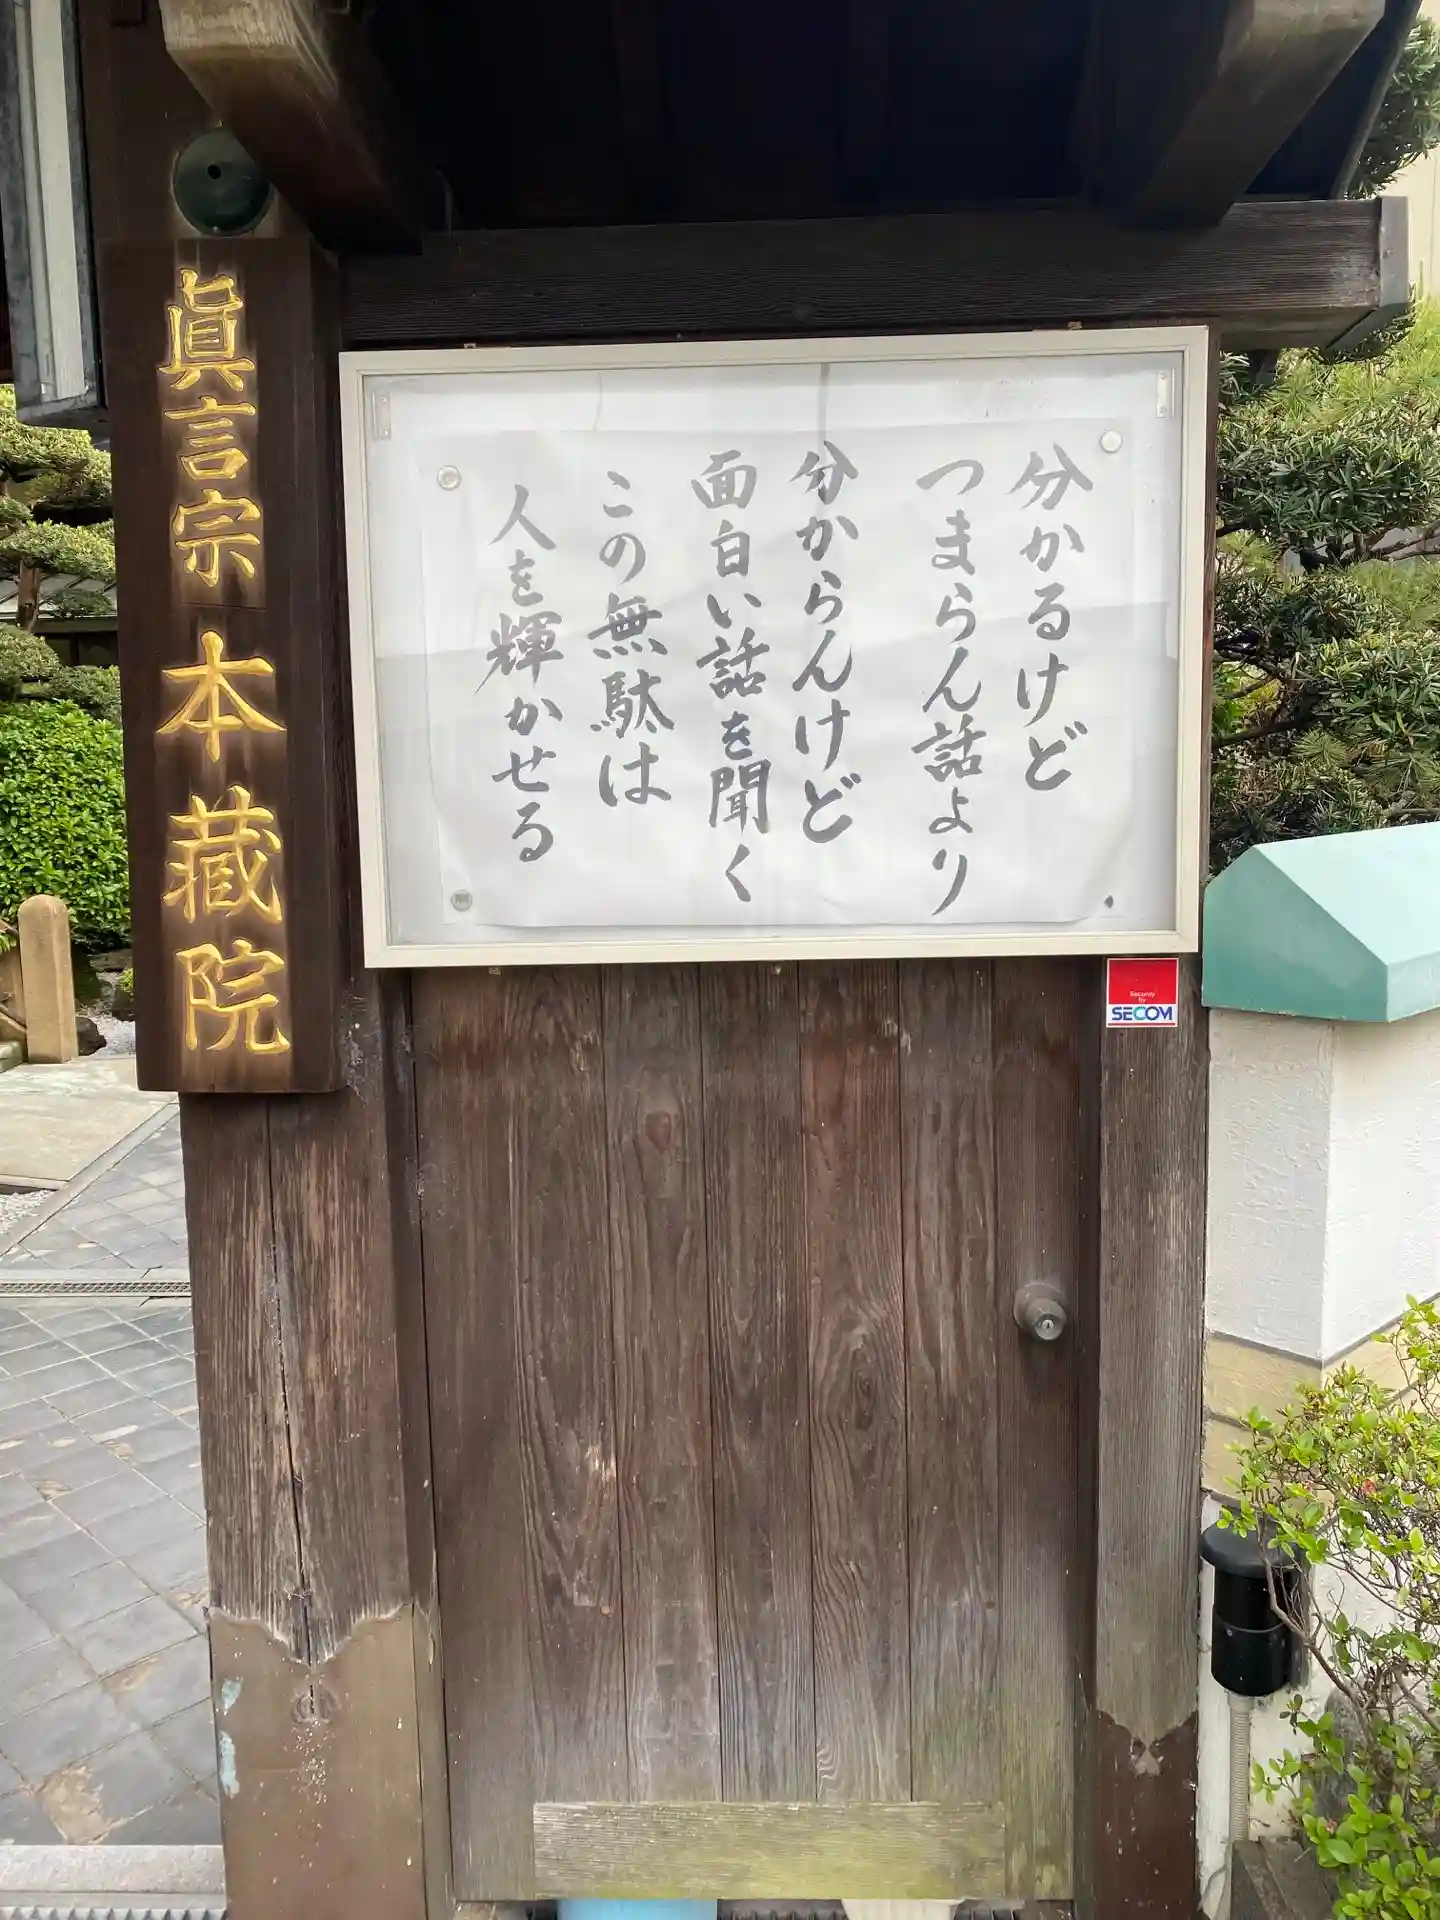 眞言宗 本蔵院
分かるけど
つまらん話より
分からんけど
面白い話を聞く
この無駄は
人を輝かせる
Security
by
SECOM